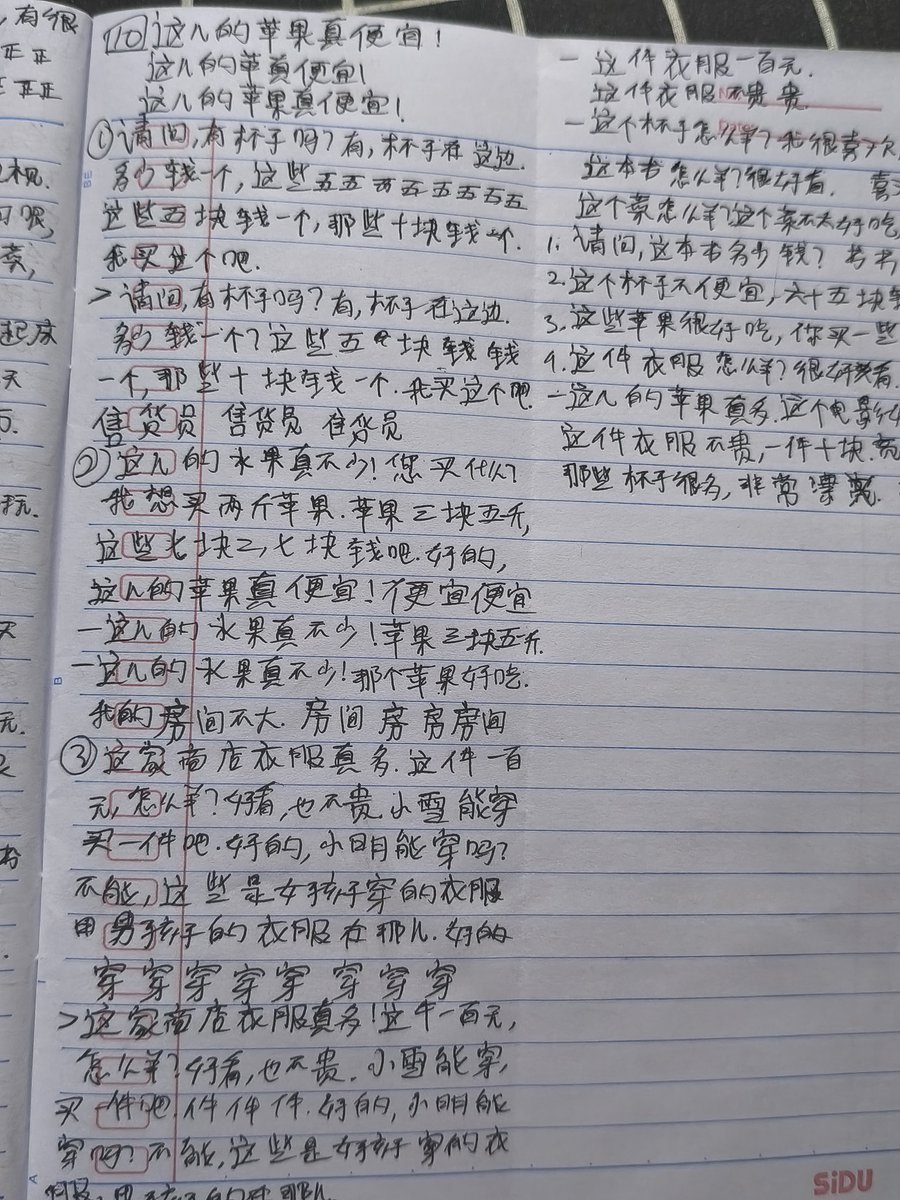 有很
正正
正正
⑩这儿的苹果真便宜!
这儿的苹真便宜!
这儿的苹果真便宜!
①请间,有杯子吗?有,杯子在这边.
多少钱一个,这些五五五五五五五五
这些五块钱一个,那些十块钱一个.
我买这个吧.
>请间,有杯子吗?有,杯子在这边.
多少钱一个?这些五块钱钱
一个,那些十块钱一个.我买这个吧.
售货员 售货员 售货员
②这儿的水果真不少!您买什么?
我想买两斤苹果.苹果三块五斤,
这些七块二,七块钱吧.好的,
这儿的苹果真便宜!便宜便宜
一这儿的水果真不少!苹果三块五斤.
一这儿的水果真不少!那个苹果好吃.
我的房间不大.房间 房 房房间
③这家商店衣服真多.这件一百
元,怎么羊?好看,也不贵.小雪能穿
买一件吧.好的,小明能穿吗?
不能,这些是女孩子穿的衣服
男孩子的衣服在那儿.好的
穿穿穿穿穿 穿穿穿
>这家商店衣服真多!这牛一百元,
怎么羊?好看,也不贵.小雪能穿,
买一件吧.件件件.好的,小明能
穿吗?不能,这些是女孩子穿的衣
一 这件衣服一百元.
这件衣服不贵 贵
一这个杯子怎么羊?我很喜欢
这本书怎么羊?很好看.
这个菜怎么羊?这个菜不太好吃,
1.请间,这本书多少钱?
2.这个杯子不便宜,六十五块钱
3.这些苹果很好吃,你买一些
4.这件衣服怎么羊?很好看.
一这儿的苹果真多.这个电影
这件衣服不贵,一件十块.
那些杯子很多,非常漂亮.
SiDU